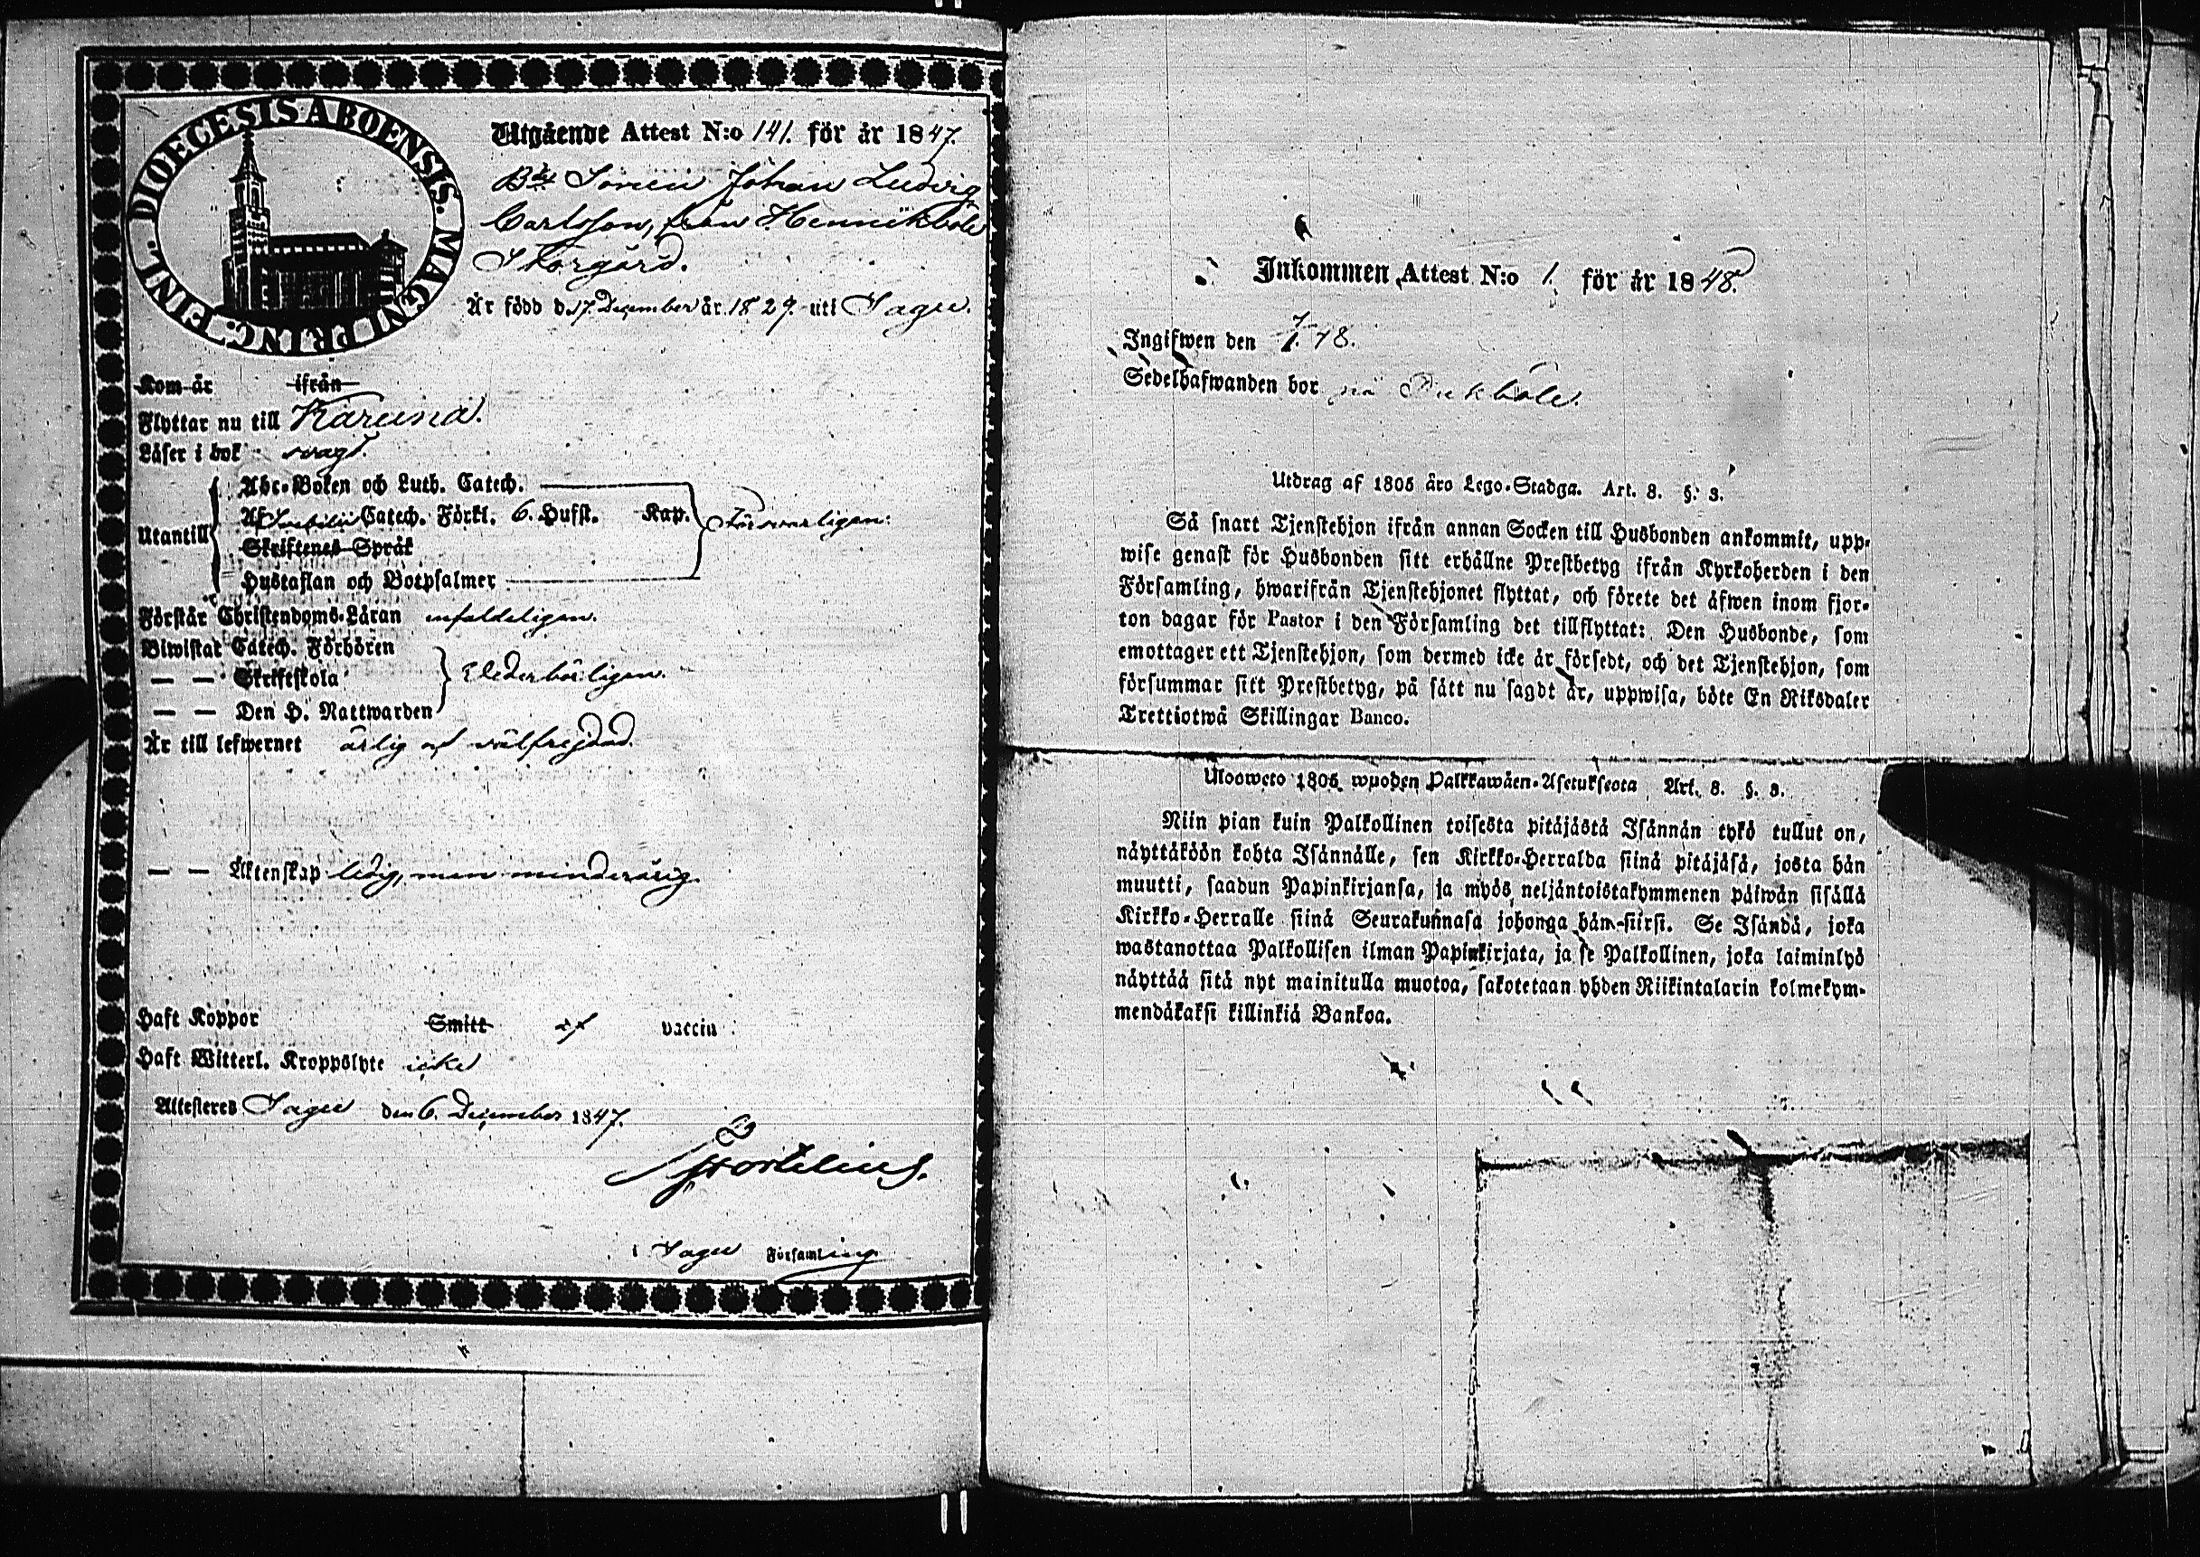 DIOECESIS ABOENSIS. MAGNI PRINC. FINL.
Utgående Attest N:o 141. för år 1847.
Bde Sonen Johan Ludvig
Carlsson, från Hennikbole
Storgård.
Är född d. 17. December år 1829. uti Sagu.
Kom år ifrån
Flyttar nu till Karuna.
Läser i bok svagt.
Utantill
Abc-Boken och Luth. Catech.
Af Svebilii Catech. Förkl. 6. Hufst. Kap.
Försvarligen.
Skriftenes Språk
Hustaflan och Botpsalmer
Förstår Christendoms-Läran enfaldeligen.
Biwistat Catech. Förhören
— — Skriftskola
Vederbörligen.
— — Den H. Nattwarden
Är till lefwernet ärlig och välfrejdad.
— — Äktenskap ledig, men minderårig.
Haft Koppor Smitt af vaccin
Haft Witterl. Kroppslyte icke
Attesteres Sagu den 6. December 1847.
i Sagu Församling
Inkommen Attest N:o 1. för år 1848.
Ingifwen den 7/1. 48.
Sedelhafwanden bor på
Utdrag af 1805 års Lego-Stadga. Art. 8. §. 3.
Så snart Tjenstehjon ifrån annan Socken till Husbonden ankommit, upp-
wise genast för Husbonden sitt erhållne Prestbetyg ifrån Kyrkoherden i den
Församling, hwarifrån Tjenstehjonet flyttat, och förete det äfwen inom fjor-
ton dagar för Pastor i den Församling det tillflyttat: Den Husbonde, som
emottager ett Tjenstehjon, som dermed icke är försedt, och det Tjenstehjon, som
försummar sitt Prestbetyg, på sätt nu sagdt är, uppwisa, böte En Riksdaler
Trettiotwå Skillingar Banco.
Ulosweto 1805 wuoden Palkkawäen-Asetuksesta Art. 8. §. 3.
Niin pian kuin Palkollinen toisesta pitäjästä Isännän tykö tullut on,
näyttäköön kohta Isännälle, sen Kirkko-Herralda siinä pitäjäsä, josta hän
muutti, saadun Papinkirjansa, ja myös neljäntoistakymmenen päiwän sisällä
Kirkko-Herralle siinä Seurakunnasa johonga hän siirsi. Se Isändä, joka
wastanottaa Palkollisen ilman Papinkirjata, ja se Palkollinen, joka laiminlyö
näyttää sitä nyt mainitulla muotoa, sakotetaan yhden Riikintalarin kolmekym-
mendäkaksi killinkiä Bankoa.